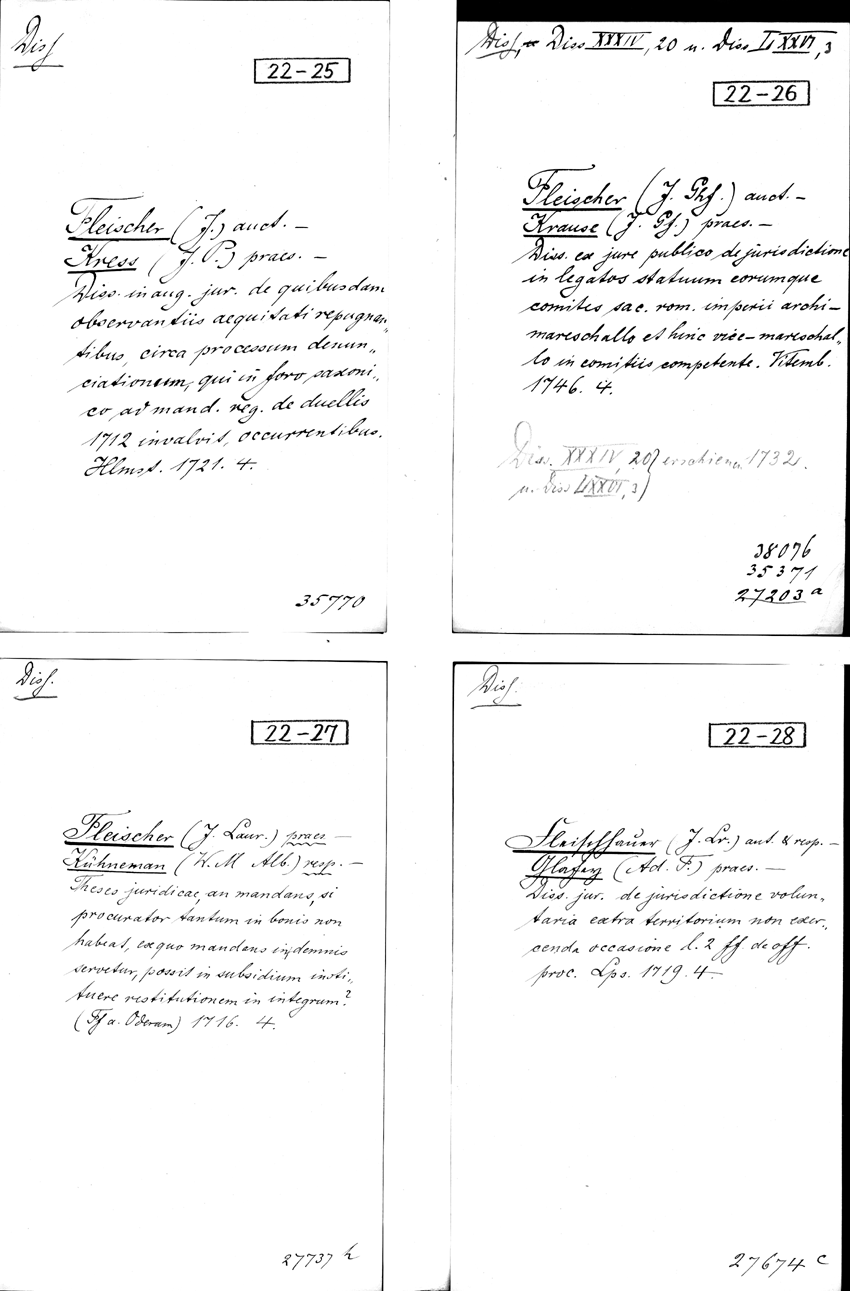 Diss
22-25
Fleischer (J.) auct. –
Kress (J. P.) praes. –
Diss. inaug. jur. de quibusdam
observantiis aequitati repugnan„
tibus, circa processum denun„
ciationeum, qui in foro saxoni„
co, ad mand. reg. de duellis
1712 invalvit, occurrentibus.
Hlmst. 1721. 4.
35770
Diss, Diss XXXIV, 20 u. Diss LXXVI, 3
22-26
Fleischer (J. Ghf.) auct. –
Krause (J. Gf.) praes. –
Diss. ex jure publico de jurisdictione
in legatos statuum eorumque
comites sac. rom. imperii archi-
mareschallo et hinc vice-mareschal„
lo in comitiis competente. Vitemb.
1746. 4.
Diss. XXXIV, 20} erschienen 1732.
u. Diss LXXVI, 3}
38076
35371
27203 a
Diss.
22-27
Fleischer (J. Laur.) praes –
Kühneman (W. M Alb.) resp. –
Theses juridicae, an mandans, si
procurator tantum in bonis non
habeat, ex quo mandans indemnis
servetur, possit in subsidium insti„
tuere restitutionem in integrum?
(Ff a. Oderam) 1716. 4.
27737 h
Diss.
22-28
Fleischhauer (J. Lr.) aut. & resp. –
Glafey (Ad. F.) praes. –
Diss. jur. de jurisdictione volun„
taria extra territorium non exer„
cenda occasione l. 2 ff. de off.
proc. Lps. 1719. 4
27674 c